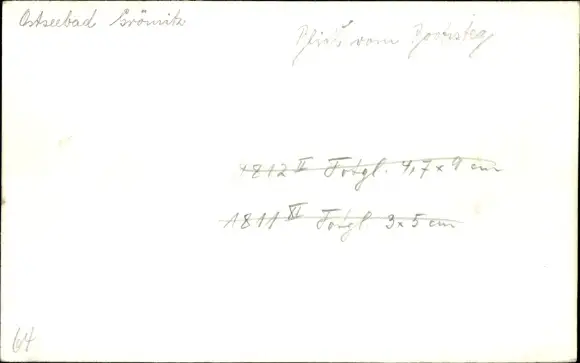 Ostseebad Grömitz
Blick vom Bootssteg
1812 II Totgl. 4,7 x 9 cm
1811 XI Totgl 3 x 5 cm
64